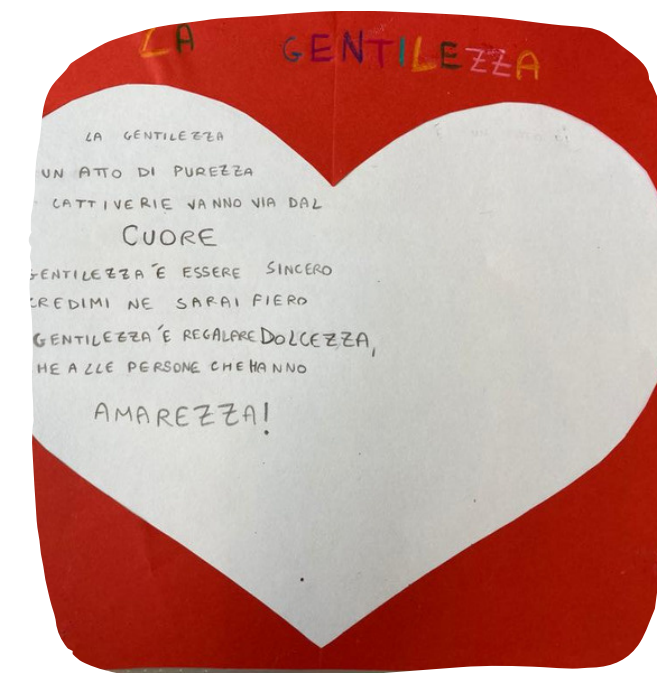 LA GENTILEZZA
LA GENTILEZZA
UN ATTO DI PUREZZA
CATTIVERIE VANNO VIA DAL
CUORE
GENTILEZZA È ESSERE SINCERO
CREDIMI NE SARAI FIERO
GENTILEZZA È REGALARE DOLCEZZA,
HE ALLE PERSONE CHE HANNO
AMAREZZA!